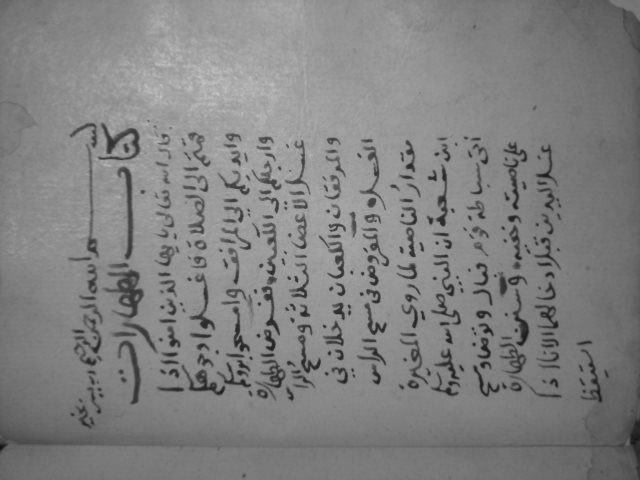 بسم الله الرحمن الرحيم رب يسر بخير
كتاب الطهارات
قال الله تعالى يا يها الذين امنوا اذا
قمتم الى الصلاة فاغسلوا وجوهكم
وايديكم الى المرافق وامسحوا برؤسكم
وارجلكم الى الكعبين ففرض الطهارة
غسل الاعضاء الثلاثة ومسح الراس
والمرفقان والكعبان يدخلان في
الغسل والمفروض في مسح الراس
مقدار الناصية لما روي المغيرة
ابن شعبة ان النبي صلى الله عليه وسلم
اتى سباطة قوم فبال وتوضا ومسح
على ناصيته وخفيه وسنن الطهارة
غسل اليدين قبل ادخالهما الانا اذا
استيقظ